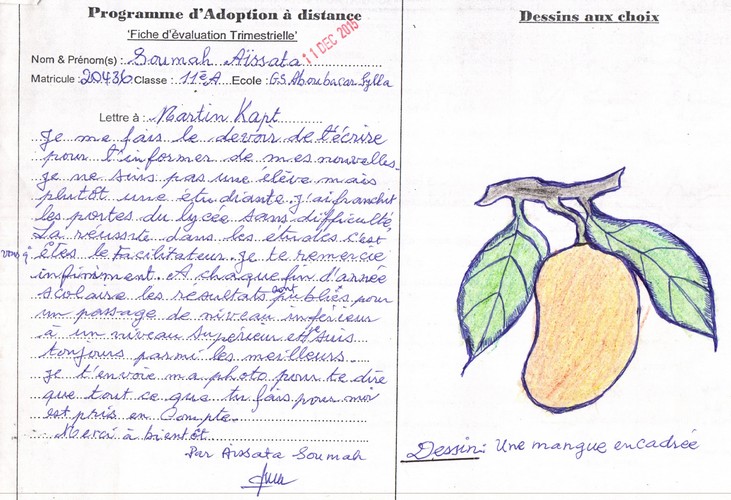 Programme d'Adoption à distance
'Fiche d'évaluation Trimestrielle'
11 DEC 2015
Nom & Prénom(s) : Soumah Aïssata
Matricule : 20436 Classe : 11e A Ecole : G.S. Aboubacar Sylla
Lettre à : Martin Kapt
Je me fais le devoir de t'écrire
pour t'informer de mes nouvelles.
Je ne suis pas une élève mais
plutôt une étudiante. J'ai franchit
les portes du lycée sans difficulté,
La réussite dans les études c'est
vous q' êtes le facilitateur. Je te remercie
infiniment. A chaque fin d'année
scolaire les resultats sont publiés pour
un passage de niveau inférieur
à un niveau supérieur et je suis
toujours parmi les meilleurs.
Je t'envoie ma photo pour te dire
que tout ce que tu fais pour moi
est pris en compte.
Merci à bientôt
Par Aissata Soumah
Dessins aux choix
Dessin : Une mangue encadrée